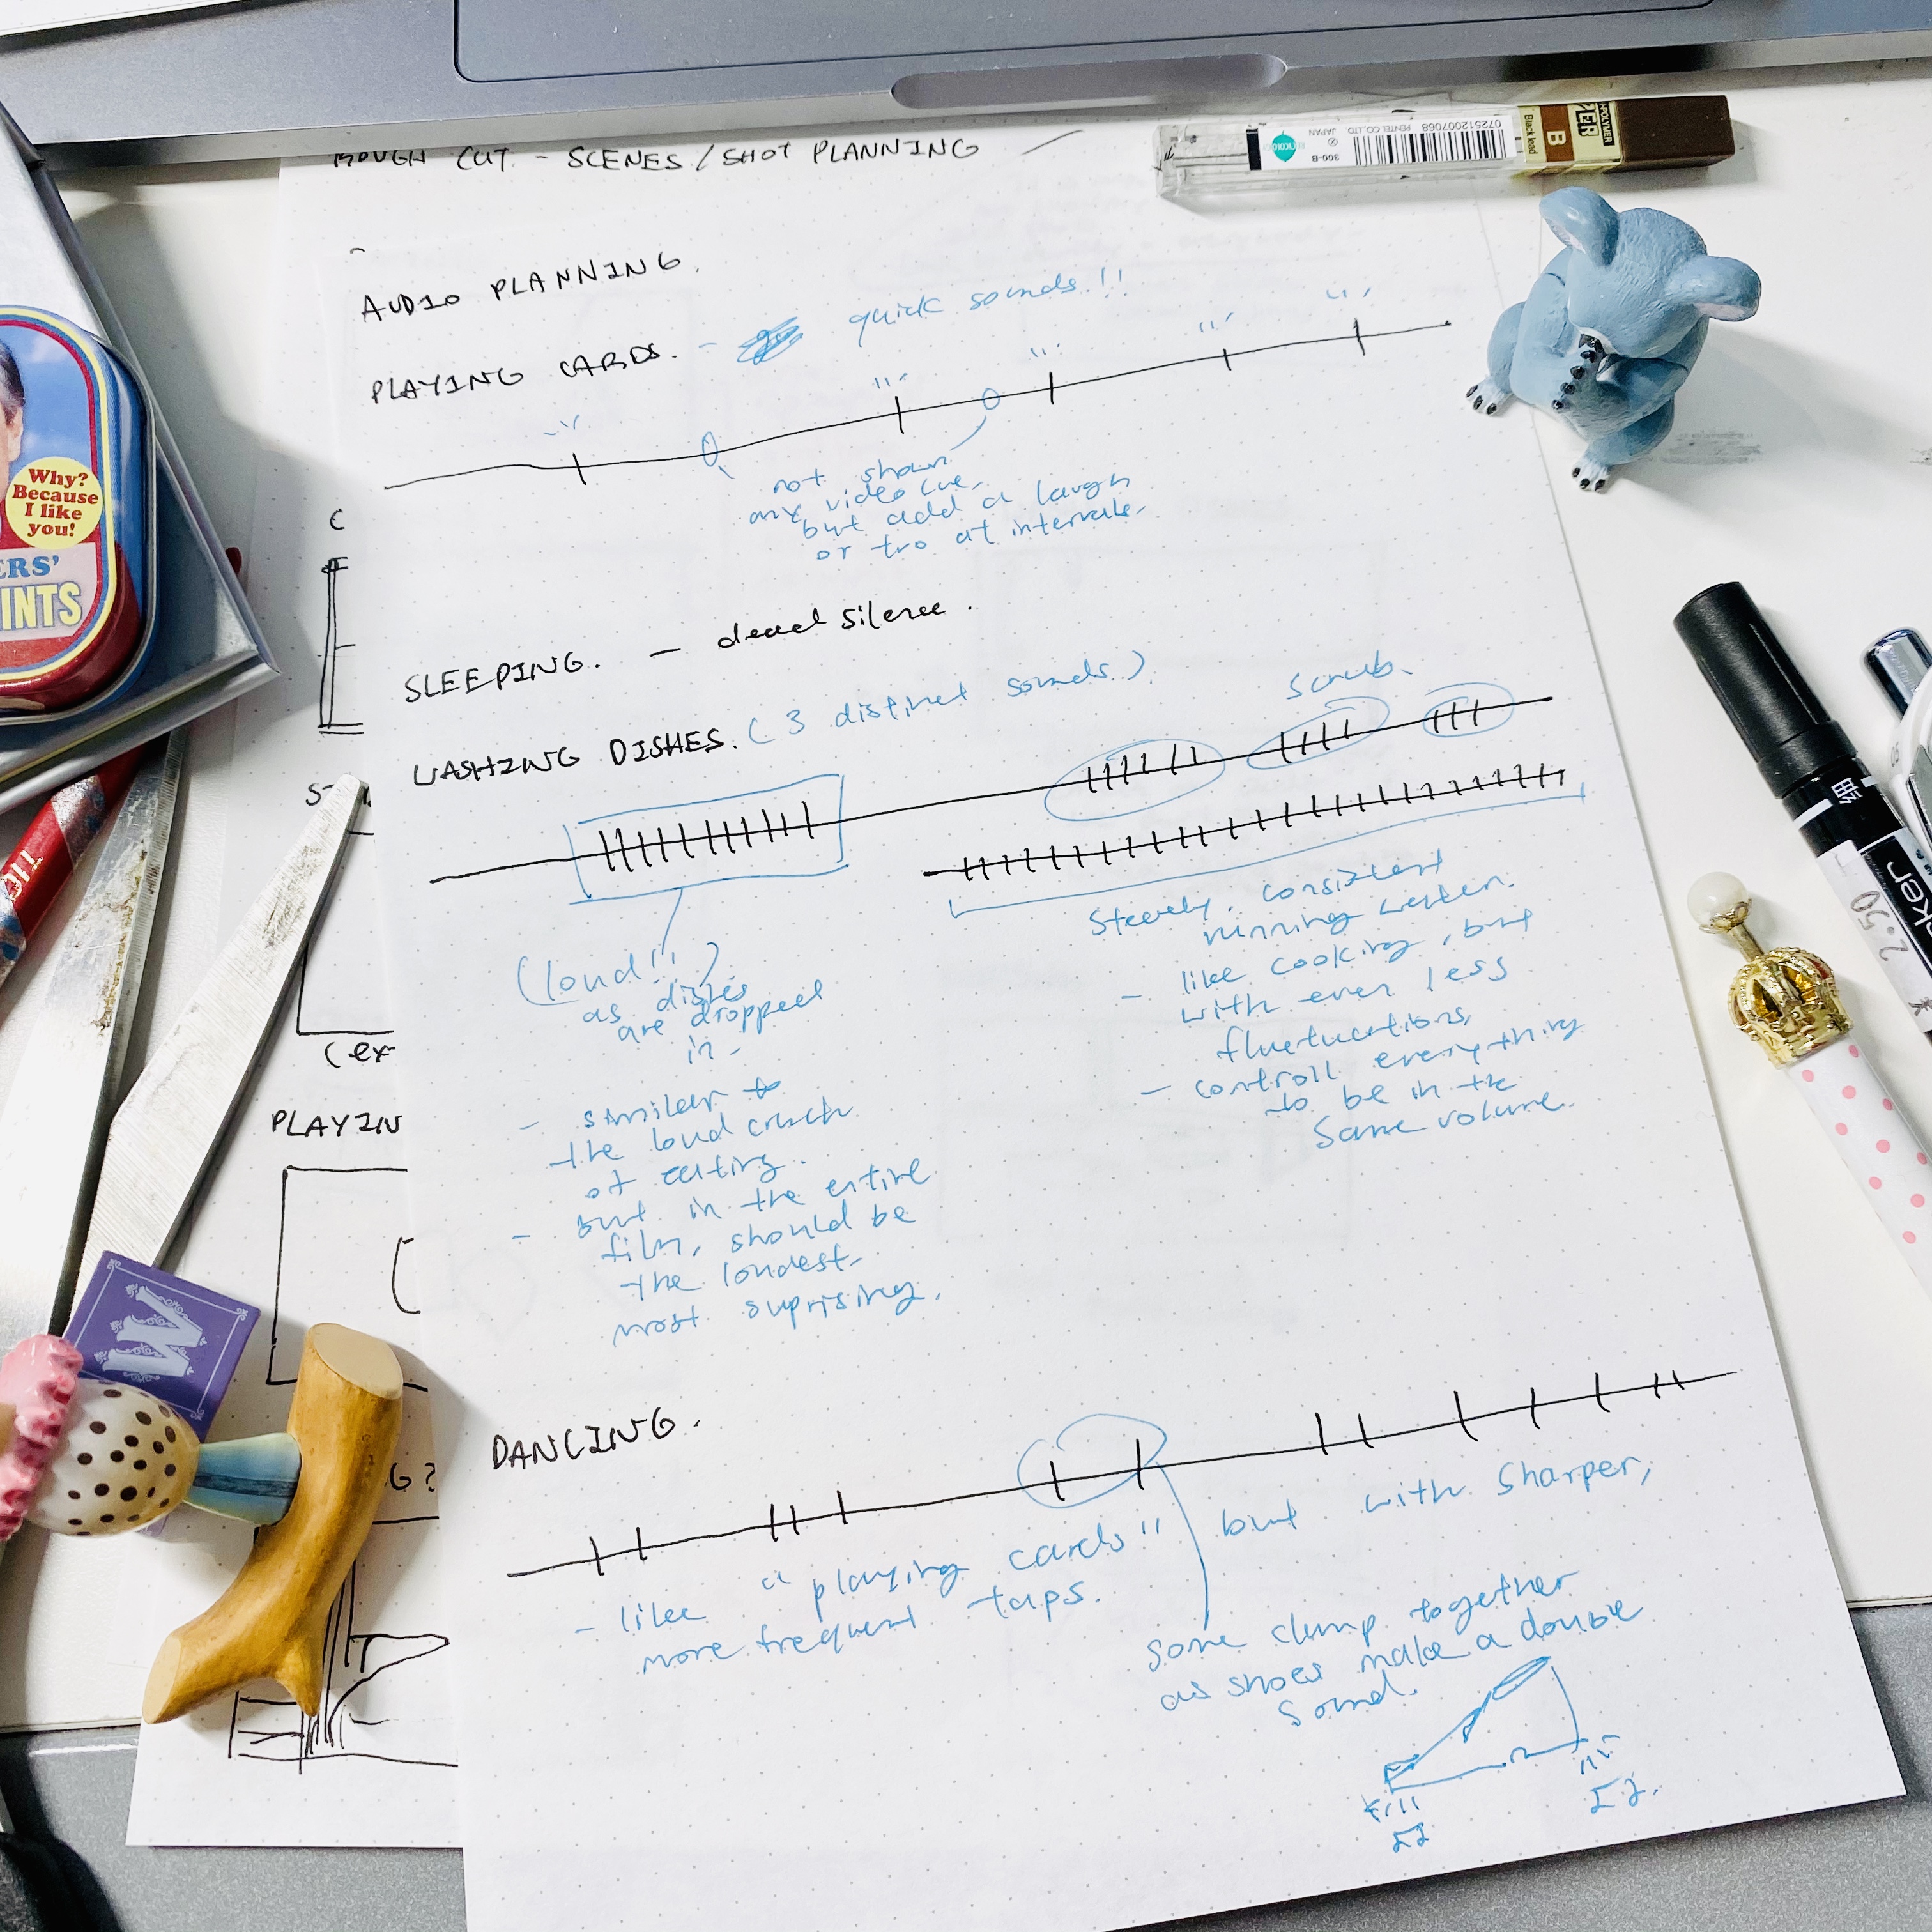 ROUGH CUT - SCENES/SHOT PLANNING
AUDIO PLANNING.
PLAYING CARDS. - quick sounds!!
not shown
any video cue,
but add a laugh
or two at intervals.
SLEEPING. - dead silence.
WASHING DISHES. (3 distinct sounds.)
scrub.
(loud!!)
as dishes
are dropped
in -
- similar to
the loud crunch
of eating.
- but in the entire
film, should be
the loudest,
most suprising.
Steady, consistent
running water.
- like cooking, but
with even less
fluctuations,
- controll everything
to be in the
same volume.
DANCING.
- like "playing cards" but with sharper,
more frequent taps.
some clump together
as shoes make a double
sound.
C
(ex
PLAYIN
G?
Why?
Because
I like
you!
ERS'
INTS
W
072512007068
PENTEL CO., LTD.
JAPAN
300-B
B
Black lead
ker
2.50